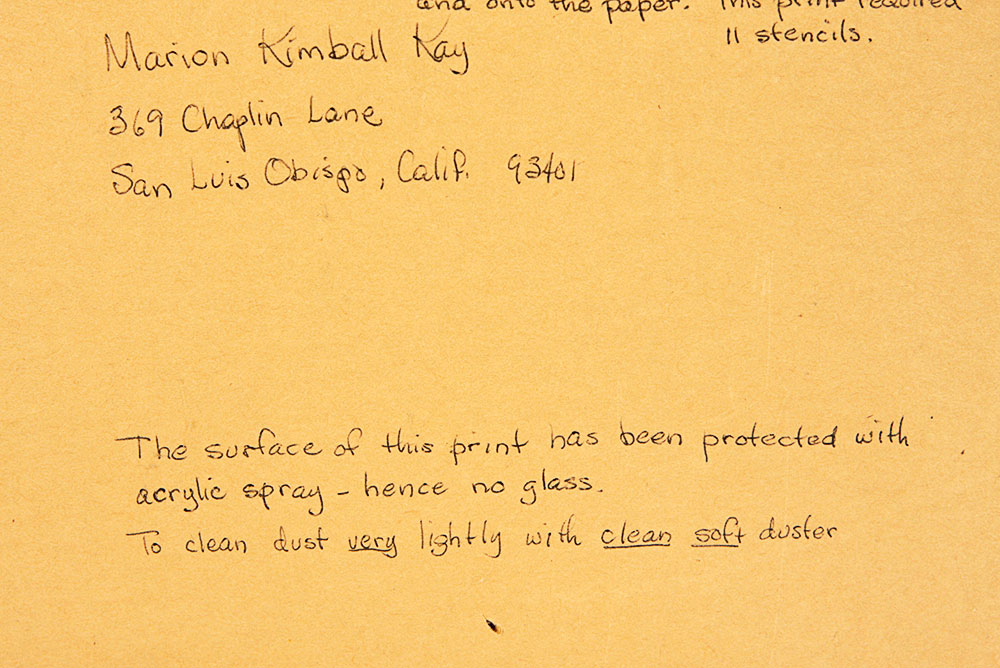 and onto the paper. This print required
11 stencils.
Marion Kimball Kay
369 Chaplin Lane
San Luis Obispo, Calif. 93401
The surface of this print has been protected with
acrylic spray - hence no glass.
To clean dust very lightly with clean soft duster